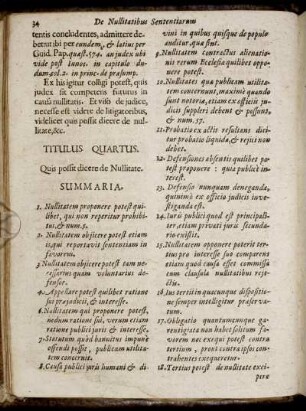 34 De Nullitatibus Sententiarum
tentis concludentes, admittere debet
ibi per eundem, & latius per
Guid. Pap. quæst. 574. an judex ubi
vide post Innoc. in capitulo dudum
el. 2. in princ. de præsump.
Ex his igitur colligi potest, quis
judex sit competens futurus in
causa nullitatis. Et viso de judice,
necesse est videre de litigatoribus,
videlicet quis possit dicere de nullitate,
&c.
TITULUS QUARTUS.
Quis possit dicere de Nullitate.
SUMMARIA.
1. Nullitatem proponere potest quilibet,
qui non reperitur prohibitus,
& num. 5.
2. Nullitatem objicere potest etiam
is, qui reportavit sententiam in
favorem.
3. Nullitatem objicere potest tam necessarius
quam voluntarius defensor.
4. Appellare potest quilibet ratione
sui præjudicii, & interesse.
6. Nullitatem qui proponere potest,
nedum ratione sui, verum etiam
ratione publici juris & interesse.
7. Statutum quod bannitus impune
offendi possit, publicam utilitatem
concernit.
8. Causa publici juris humani & divini
in quibus quisque de populo
auditur, quæ sint.
9. Nullitatem contractus alienationis
rerum Ecclesiæ quilibet opponere
potest.
10. Nullitates quæ publicam utilitatem
concernunt, maxime quando
sunt notoria, etiam ex officio judicis
suppleri debent & possunt,
& num. 37.
11. Probatio ex actis resultans dicitur
probatio liquida, & rejici non
debet.
12. Defensiones absentis quilibet potest
proponere: quia publice interest.
13. Defensio nunquam deneganda,
quinimò ex officio judicis investiganda
est.
14. Juris publici quod est principaliter,
etiam privati juris secundario
existit.
15. Nullitatem opponere poterit tertius
pro interesse suo comparens
etiam quod causa esset commissa
cum clausula nullitatibus rejectis.
16. Jus tertii in quacunque dispositione
semper intelligitur præservatum.
17. Obligatio quantumcunque guarentigiata
non habet soliditatem fororem
nec exequi potest contra
tertium, prout contra ipsos contrahentes
exequeretur.
18. Tertius potest de nullitate excipere